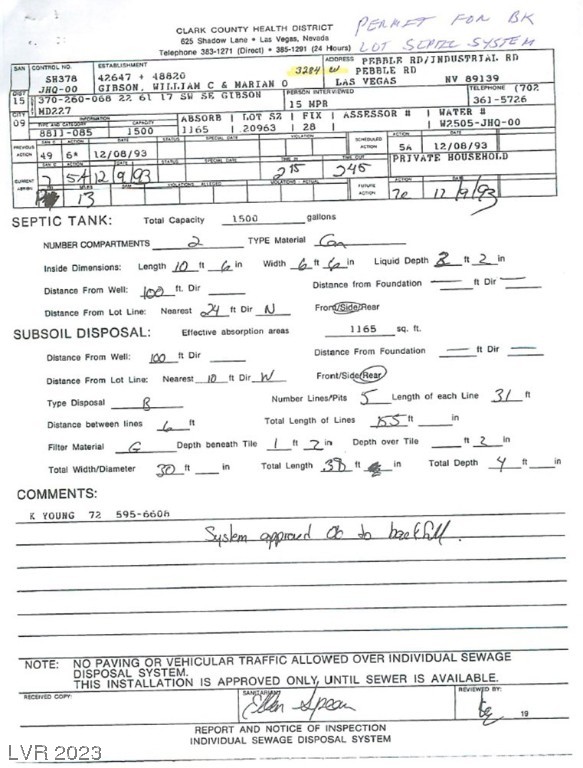 CLARK COUNTY HEALTH DISTRICT
625 Shadow Lane • Las Vegas, Nevada
Telephone 383-1271 (Direct) • 385-1291 (24 Hours)
PERMIT FOR BK
LOT SEPTIC SYSTEM
SAN CONTROL NO. ESTABLISHMENT ADDRESS PEBBLE RD/INDUSTRIAL RD
SH378 42647 + 48820 3284 W PEBBLE RD
JHQ-00 GIBSON, WILLIAM C & MARIAN O LAS VEGAS NV 89139
DIST 15 370-260-068 22 61 17 SW SE GIBSON PERSON INTERVIEWED TELEPHONE (702
ND227 15 MPR 361-5726
CITY 09 TYPE AND CATEGORY CAPACITY ABSORB LOT SZ FIX ASSESSOR # WATER #
8811-085 1500 1165 20963 28 W2505-JHQ-00
PREVIOUS ACTION SAN ACTION DATE STATUS SPECIAL DATE VIOLATION SCHEDULED ACTION ACTION DATE
49 6* 12/08/93 5A 12/08/93
CURRENT SAN ACTION DATE STATUS SPECIAL DATE TIME IN TIME OUT PRIVATE HOUSEHOLD
7 5A 12/9/93 2 15 2 45
MILES SAN VIOLATIONS ALLEGED VIOLATIONS - ACTUAL FUTURE ACTION ACTION DATE
13 7e 12/9/93
SEPTIC TANK: Total Capacity 1500 gallons
NUMBER COMPARTMENTS 2 TYPE Material Con
Inside Dimensions: Length 10 ft 6 in Width 6 ft 6 in Liquid Depth ft 2 in
Distance From Well: 100 ft. Dir Distance from Foundation ft Dir
Distance From Lot Line: Nearest 24 ft Dir N Front/Side/Rear
SUBSOIL DISPOSAL: Effective absorption areas 1165 sq. ft.
Distance From Well: 100 ft Dir Distance From Foundation ft Dir
Distance From Lot Line: Nearest 10 ft Dir W Front/Side/Rear
Type Disposal B Number Lines/Pits 5 Length of each Line 31 ft
Distance between lines 6 ft Total Length of Lines 155 ft in
Filter Material G Depth beneath Tile 1 ft 2 in Depth over Tile ft 2 in
Total Width/Diameter 30 ft in Total Length 38 ft in Total Depth 4 ft in
COMMENTS:
K YOUNG 72 595-6608
System approved Ok to backfill.
NOTE: NO PAVING OR VEHICULAR TRAFFIC ALLOWED OVER INDIVIDUAL SEWAGE
DISPOSAL SYSTEM.
THIS INSTALLATION IS APPROVED ONLY, UNTIL SEWER IS AVAILABLE.
RECEIVED COPY: SANITARIAN Ellen Spean REVIEWED BY: 19
REPORT AND NOTICE OF INSPECTION
INDIVIDUAL SEWAGE DISPOSAL SYSTEM
LVR 2023